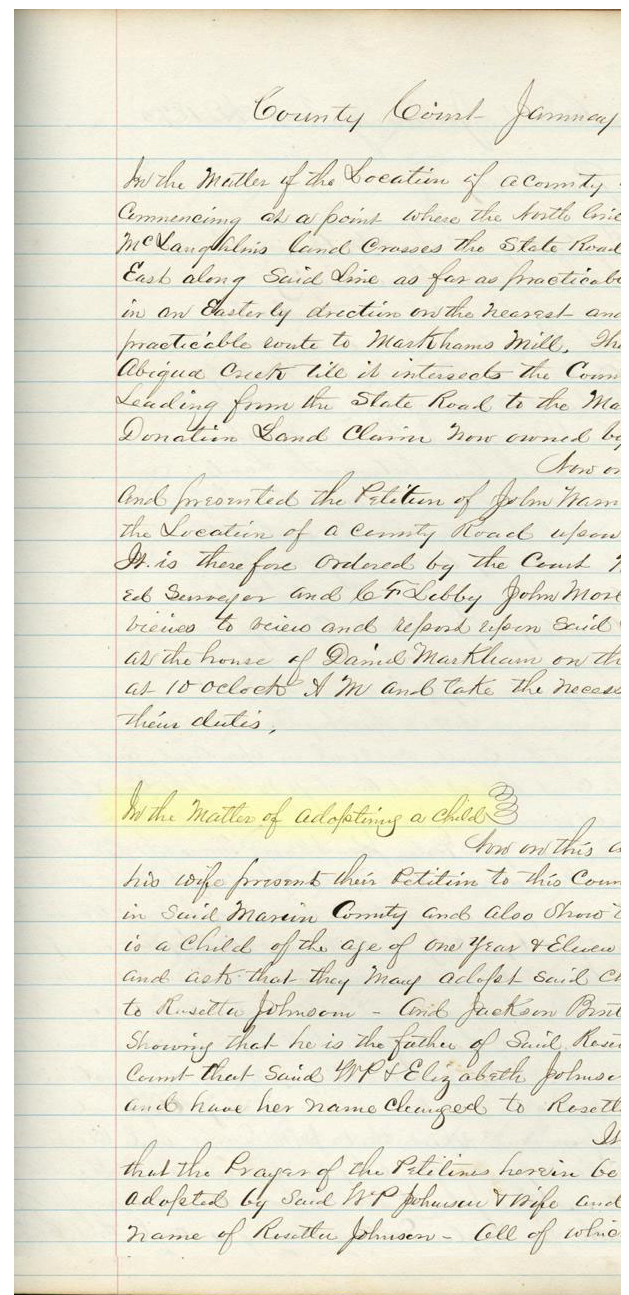 County Court January
In the Matter of the Location of a county
Commencing at a point where the North line
McLaughlins land crosses the State Road
East along Said Line as far as practicab
in an Easterly drection on the nearest and
practicable route to Markhams Mill, The
Abiqua Creek till it intersects the Coun
Leading from the State Road to the Ma
Donation Land Claim Now owned by
Now on
and presented the Petition of John
the Location of a county Road upon
It is therefore ordered by the Court
ed Surveyor and C F Libby John More
views to view and report upon Said
at the house of David Markham on th
at 10 oclock A M and take the necess
their dutis,
In the Matter of adopting a child
Now on this
his wife present their Petition to this Coun
in Said Marion County and also Show
is a child of the age of one Year & Eleven
and ask that they may adopt said ch
to Rosetta Johnson - and Jackson
Showing that he is the father of Said Rose
Court that Said W P & Elizabeth Johnso
and have her name changed to Rosett
It
that the Prayer of the Petitines herein be
adopted by Said W P Johnson & wife and
name of Rosetta Johnson - all of whic